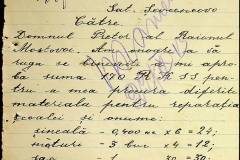 Sat. Savencovo
Către
Domnul Pretor al Raionul
Mostovoe. Am onoare a vă
ruga se bucu să mi apro
ba suma 190 R K SS pen-
tru a mea procura diferite
materiala pentru reparația
școalei și onume:
sineală - 0,400 x 6 = 24;
mături - 3 buc x 4 = 12;